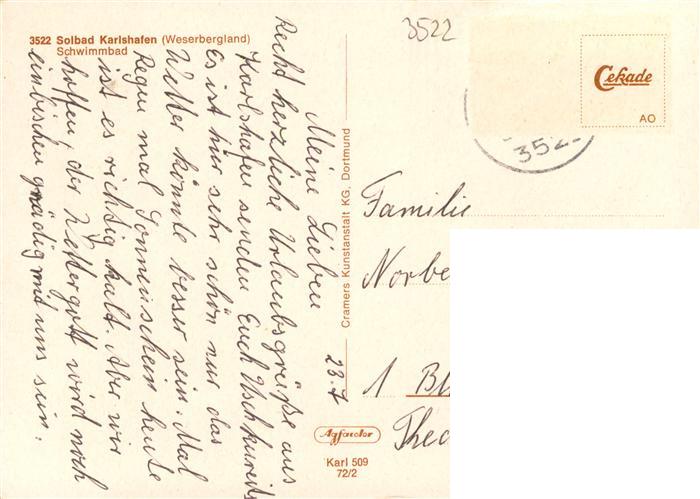 3522 Solbad Karlshafen (Weserbergland)
Schwimmbad
3522
Cekade
AO
352
Meine Lieben 23.7
Recht herzliche Urlaubsgrüße aus
Karlshafen senden Euch
Es ist hier sehr schön nur das
Wetter könnte besser sein. Mal
Regen mal Sonnenschein heute
ist es richtig kalt. Aber wir
hoffen, der Wettergott wird noch
ein bischen gnädig mit uns sein.
Cramers Kunstanstalt KG, Dortmund
Familie
Norbe
1 Bl
Theo
Agfacolor
Karl 509
72/2